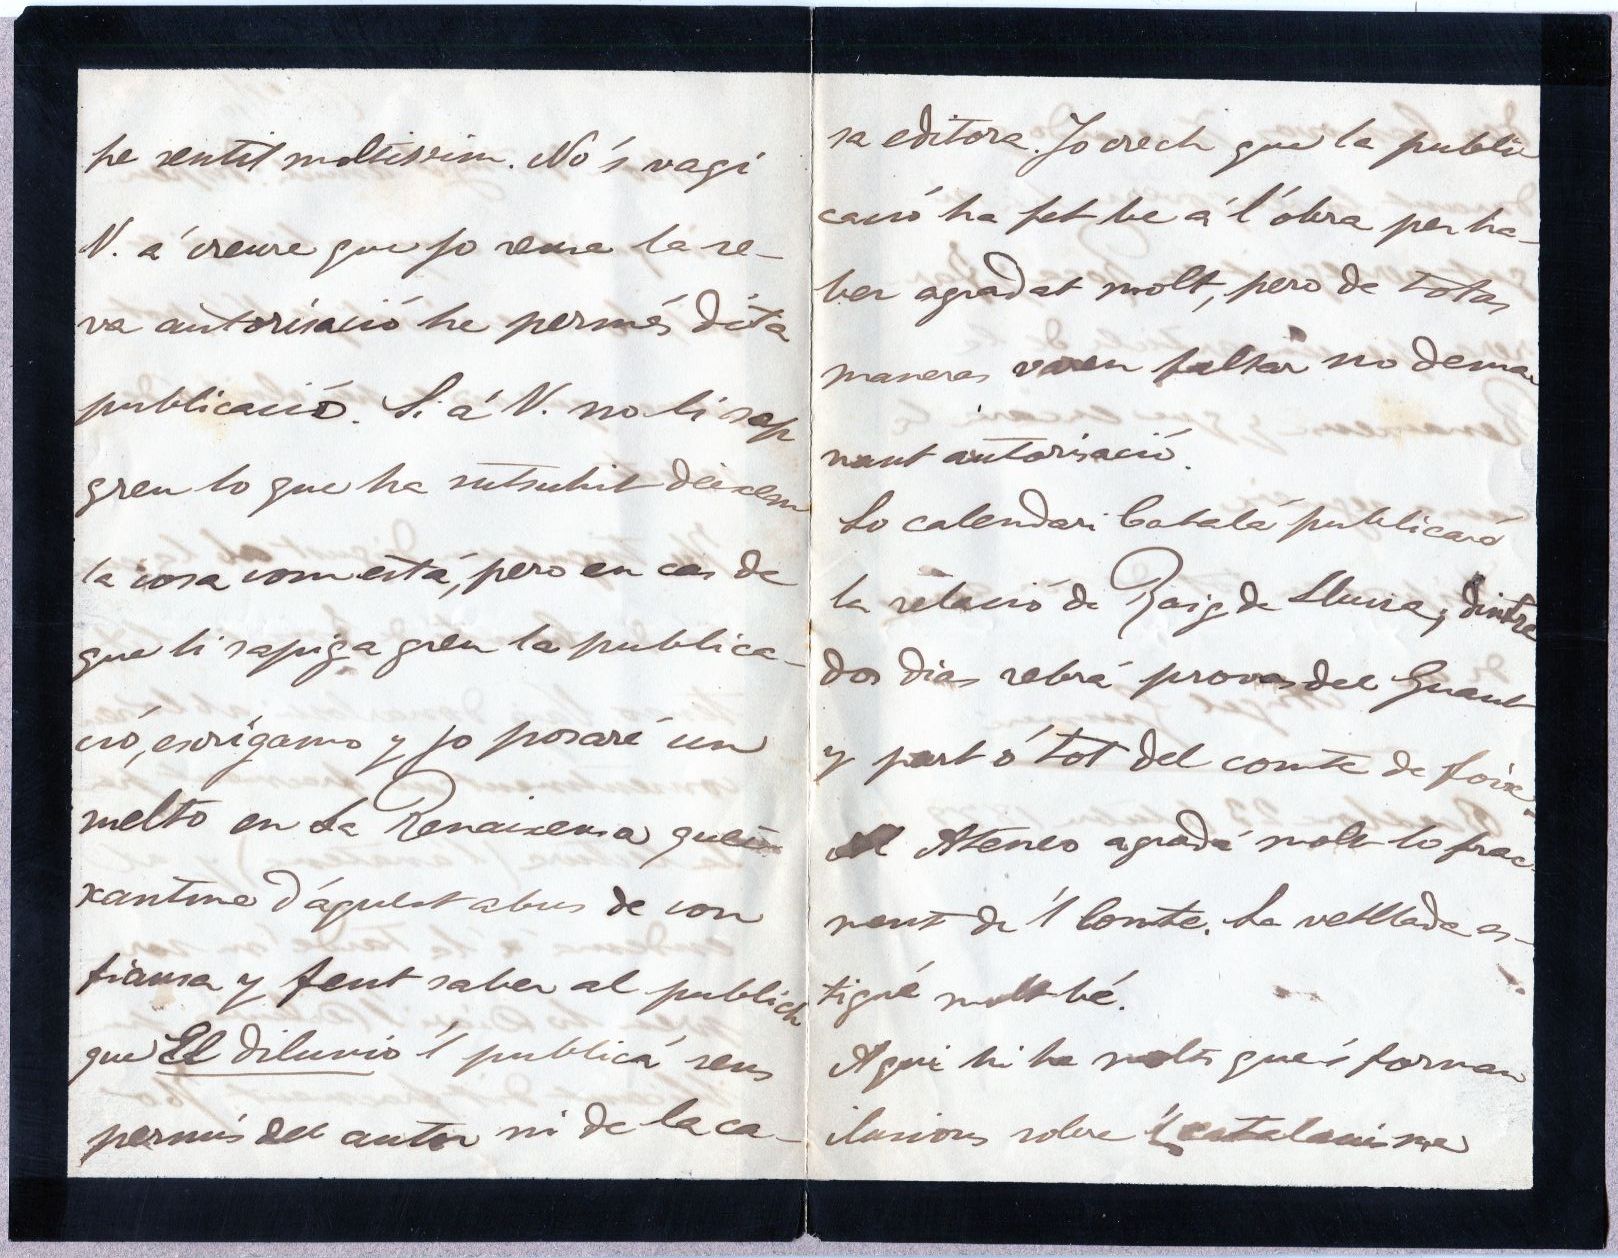 he sentit moltissim. No 's vagi
V. á creure que jo sense la se-
va autorisació he permés dita
publicació. Si á V. no li sap
greu lo que ha sutsuhit deixem
la cosa com está, pero en cas de
que li sapiga greu la publica-
ció, escrigamo y jo posaré un
suelto en La Renaixensa quei-
xantme d'aquest abus de con
fiansa y fent saber al publich
que El diluvio 'l publicá sens
permís del autor ni de la ca-
sa editora. Jo crech que la publi
cació ha fet be á l'obra per ha-
ber agradat molt, pero de totas
maneras varen faltar no dema
nant autorisació.
Lo calendari Catalá publicará
la relació de Roig de Lluria, dintre
dos dias rebrá provas del Guant
y part ó tot del comte de foix.
Al Ateneo agradá molt lo frac-
ment de 'l Comte. La vetllada es-
tigué molt bé.
Aqui hi ha molts que 's forman
ilusions sobre 'l catalanisme